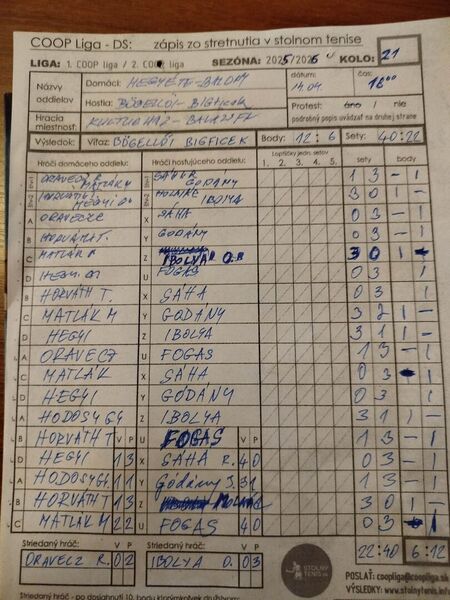 COOP Liga - DS: zápis zo stretnutia v stolnom tenise
LIGA: 1. COOP liga / 2. COOP liga SEZÓNA: 2025/2026 KOLO: 21
Názvy oddielov Domáci: HEGYÉTE - dátum: 14.04. čas: 18 00
Hostia: BÖGELLŐI - BIGFICEK Protest: áno / nie
Hracia miestnosť KULTÚRHÁZ - podrobný popis uvádzať na druhej strane
Výsledok: Víťaz: BÖGELLŐI BIGFICEK Body: 12 : 6 Sety: 40:22
Hráči domáceho oddielu: Hráči hosťujúceho oddielu: Loptičky jedn. setov sety body
1. 2. 3. 4. 5.
ORAVECZ R. MATLÁK M SÁHA R GÓDÁNY 1 3 - 1
HORVÁTH T. HEGYI O. MOLNÁR IBOLYA 3 0 1 -
A ORAVECZ X SÁHA 0 3 - 1
B HORVÁTH T. Y GÓDÁNY 0 3 - 1
C MATLÁK M Z IBOLYA O. 3 0 1 -
D HEGYI O. U FOGAS 0 3 1
B HORVÁTH T. X SÁHA 0 3 1
C MATLÁK M Y GÓDÁNY 3 2 1 -
D HEGYI Z IBOLYA 3 1 1 -
A ORAVECZ U FOGAS 1 3 - 1
C MATLÁK X SÁHA 0 3 1
D HEGYI Y GÓDÁNY 0 3 1
A HODOSY GY Z IBOLYA 3 1 1 -
B HORVÁTH T V P U FOGAS V P 1 3 - 1
D HEGYI 1 3 X SÁHA R. 4 0 0 3 - 1
A HODOSY GY. 1 1 Y Gódány S. 3 1 1 3 - 1
B HORVÁTH T 1 3 Z 3 0 1 -
C MATLÁK M 2 2 U FOGAS 4 0 0 3 1
Striedaný hráč: V P Striedaný hráč: V P 22:40 6:12
ORAVECZ R. 0 2 IBOLYA O. 0 3
STOLNÝ TENIS
POSLAŤ: coopliga@coopliga.sk
VÝSLEDKY: www.stolnytenis.info
Striedaný hráč - po dosiahnutí 10. bodu ktorýmkoľvek družstvom